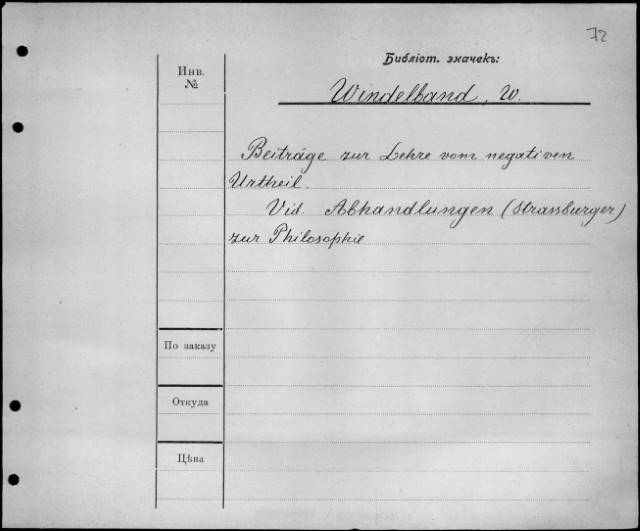 72
Библіот. значекъ:
Инв.
№
Windelband, W.
Beiträge zur Lehre vom negativen
Urtheil.
Vid. Abhandlungen (Strassburger)
zur Philosophie
По заказу
Откуда
Цѣна